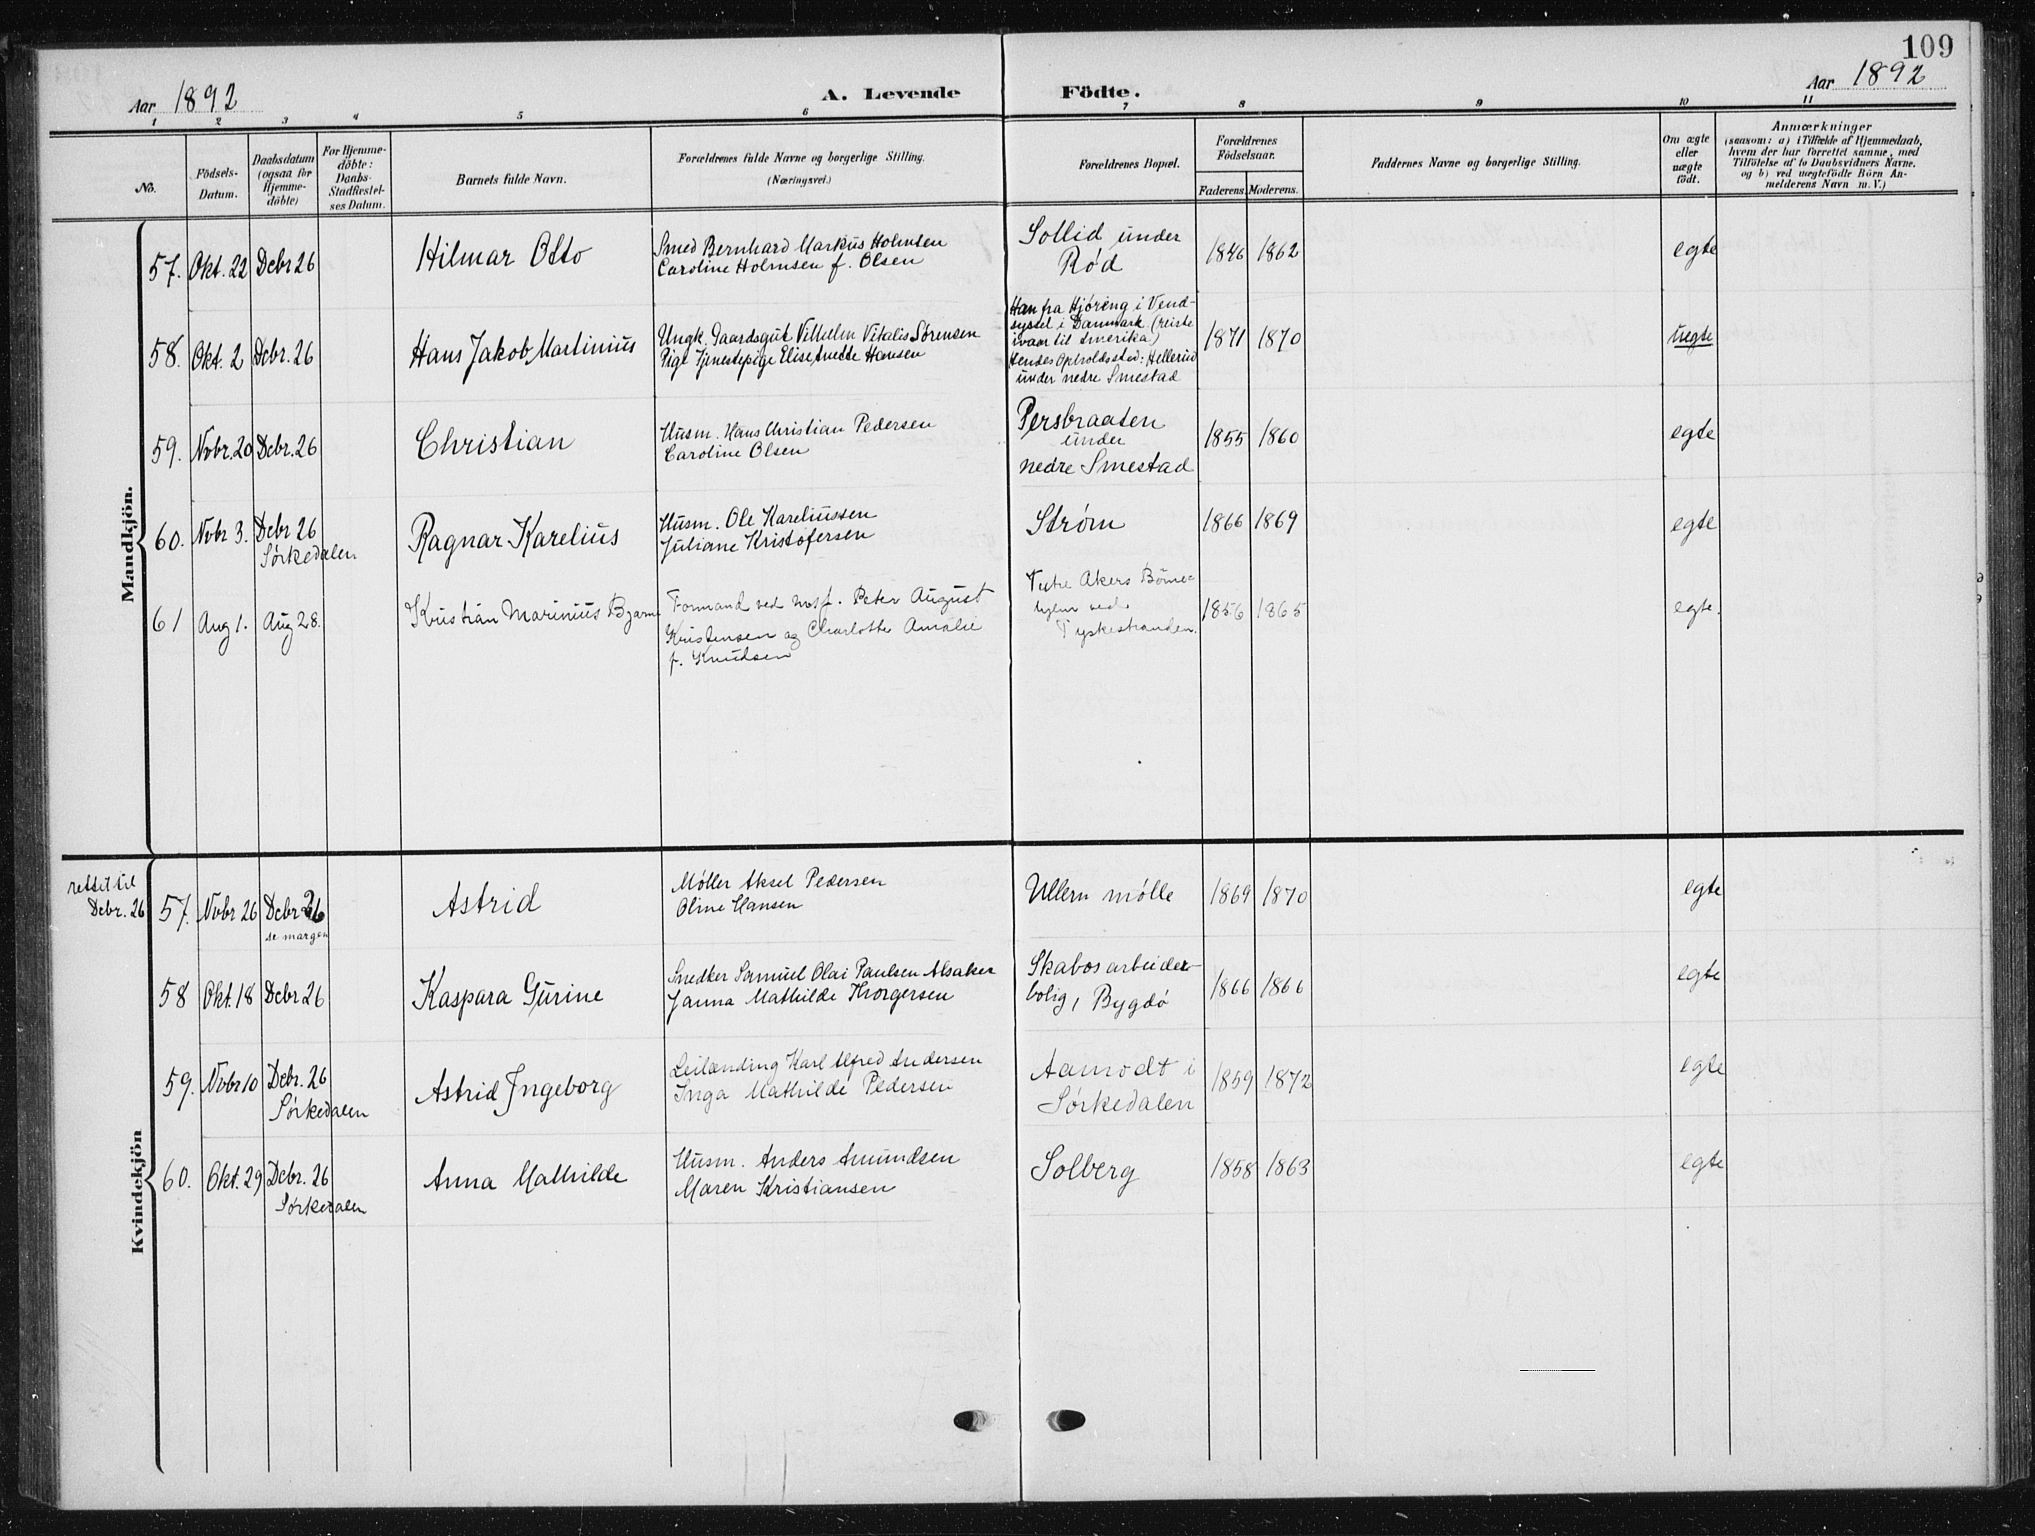 109
Aar 1892
A. Levende Födte.
Aar 1892
1 2 3 4 5 6 7 8 9 10 11
No.
Födsels-Datum.
Daabsdatum (ogsaa for Hjemme-döbte)
For Hjemme-döbte: Daabs-Stadfæstel-ses Datum.
Barnets fulde Navn.
Forældrenes fulde Navne og borgerlige Stilling.
(Næringsvei.)
Forældrenes Bopæl.
Forældrenes Födselsaar.
Faderens. Moderens.
Faddernes Navne og borgerlige Stilling.
Om ægte eller uægte födt.
Anmærkninger
(saasom: a) i Tilfælde af Hjemmedaab,
hvem der har forrettet samme, med
Tilföielse af to Daabsvidners Navne,
og b) ved uægtefödte Börn An-
melderens Navn m. V.)
Mandkjön.
57. Okt. 22 Debr 26 Hilmar Otto
Smed Bernhard Markus Holmsen
Caroline Holmsen f. Olsen
Sollid under
Rød
1846 1862 egte
58. Okt. 2 Debr. 26 Hans Jakob Martinius
Ungk. Gaardsgut Vilhelm Vitalis Sørensen
Pige Tjenestepige Elise Anette Hansen
Han fra Hjøring i Vend-
syssel i Danmark (reiste
ivaar til Amerika)
Hendes Opholdssted: Hellerud
under nedre Smestad
1871 1870 uegte
59. Nobr. 20 Debr. 26 Christian
Husm. Hans Christian Pedersen
Caroline Olsen
Persbraaten
under
nedre Smestad
1855 1860 egte
60. Nobr 3. Debr 26
Sørkedalen
Ragnar Karelius
Husm. Ole Kareliussen
Juliane Kristofersen
Strøm
1866 1869 egte
61 Aug 1. Aug 28. Kristian Marinius Bjarne
Formand ved . Peter August
Kristensen og Charlotte Amalie
f. Knudsen
Vestre Akers Børne=
ved
Tyskestranden.
1856 1865 egte.
Kvindekjön
rettet til
Debr. 26
57. Nobr 26 Debr 26
se margen
Astrid
Møller Aksel Pedersen
Oline Hansen
Ullern mølle
1869 1870 egte
58 Okt. 18 Debr 26 Kaspara Gurine
Snedker Samuel Olai Paulsen Alsaker
Janna Mathilde Thorgersen
Skabos arbeider-
bolig, Bygdø
1866 1866 egte
59. Nobr 10 Debr. 26
Sørkedalen
Astrid Ingeborg
Leilænding Karl Alfred Andersen
Inga Mathilde Pedersen
Aamodt i
Sørkedalen
1859 1872 egte
60. Okt. 29 Debr. 26
Sørkedalen
Anna Mathilde
Husm. Anders Amundsen
Maren Kristiansen
Solberg
1858 1863 egte